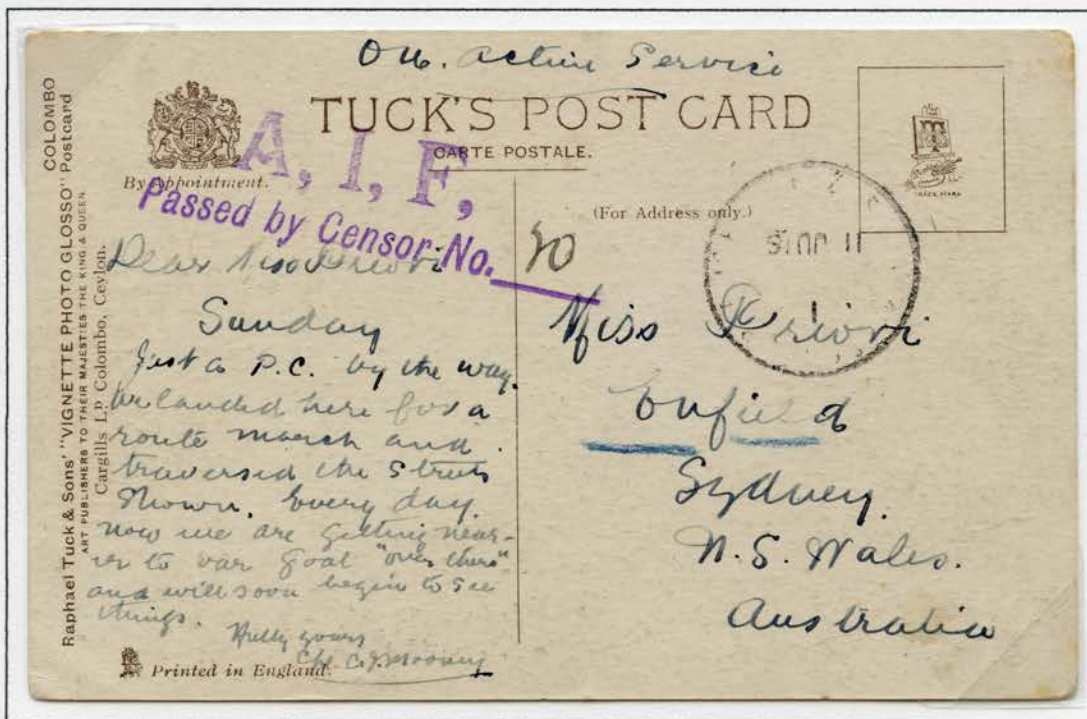 On Active Service
TUCK'S POST CARD
CARTE POSTALE.
By Appointment.
A, I, F,
Passed by Censor No. 50
(For Address only.)
TRADE MARK
11 JU 16
COLOMBO
Raphael Tuck & Sons' "VIGNETTE PHOTO GLOSSO" Postcard
ART PUBLISHERS TO THEIR MAJESTIES THE KING & QUEEN.
Cargills LD Colombo, Ceylon.
Dear Miss
Sunday
Just a P.C. by the way.
We landed here for a
route march and
traversed the Streets
Shown. Every day.
now we are getting near-
er to our goal "over there"
and will soon begin to see
things.
yours
C. J. Mooney
Printed in England.
Miss
Enfield
Sydney.
N. S. Wales.
Australia